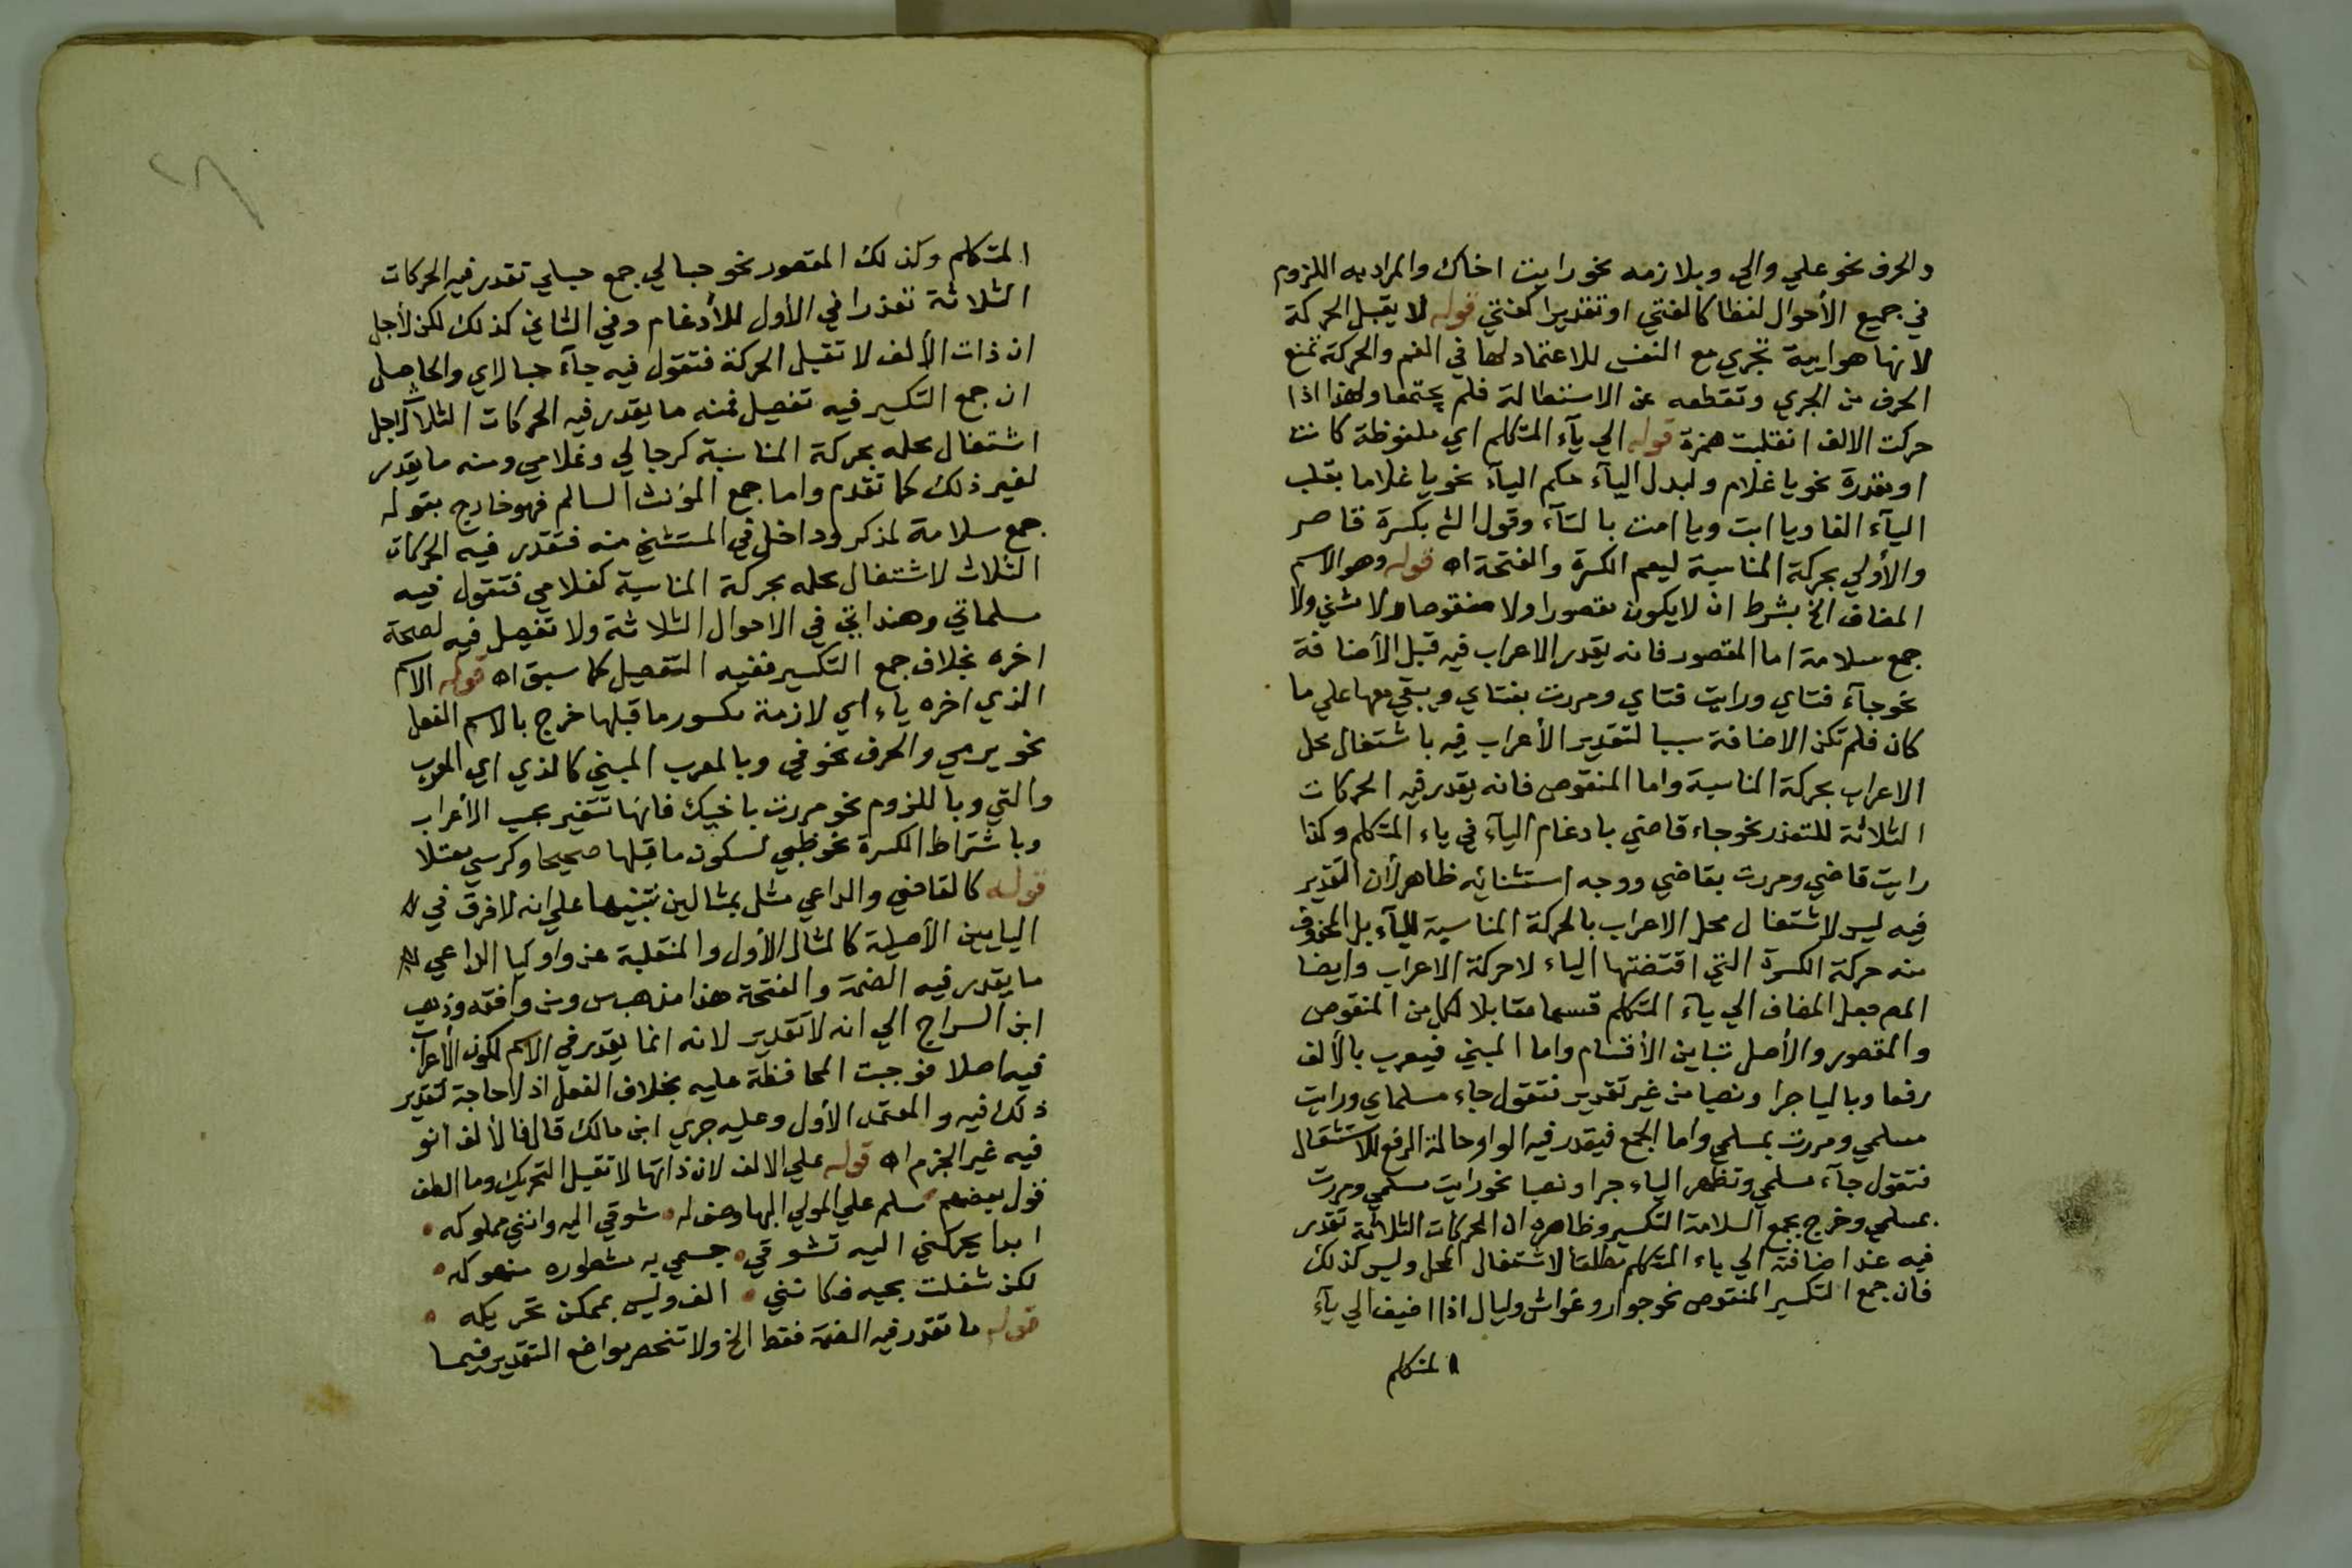 والحرف نحو علي والي وبلازمه نحو رايت اخاك والمراد به اللزوم
في جميع الأحوال لفظا كالفتي او تقديرا كفتي قوله لا يقبل الحركة
لانها هوايية تجري مع النفس للاعتماد لها في الفم والحركة تمنع
الحرف من الجري وتقطعه عن الاستطالة فلم يجتمعا ولهذا اذا
حركت الالف انقلبت همزة قوله الي يآء المتكلم اي ملفوظة كانت
او مقدرة نحو يا غلام ولبدل اليآء حكم اليآء نحو يا غلاما بقلب
اليآء الفا ويا ابت ويا امت بالتآء وقول الش بكسرة قاصر
والأولي بحركة المناسبة ليعم الكسرة والفتحة اه قوله وهو الاسم
المضاف الخ بشرط ان لا يكون مقصورا ولا منقوصا ولا مثني ولا
جمع سلامة اما المقصور فانه يقدر الاعراب فيه قبل الأضافة
نحو جآء فتاي ورايت فتاي ومررت بفتاي وبقي معها علي ما
كان فلم تكن الاضافة سببا لتقدير الأعراب فيه باشتغال محل
الاعراب بحركة المناسبة واما المنقوص فانه يقدر فيه الحركات
الثلاثة للتعذر نحو جاء قاضي بادغام اليآء في ياء المتكلم وكذا
رايت قاضي ومررت بقاضي ووجه استثنائه ظاهر لأن التقدير
فيه ليس لاشتغال محل الاعراب بالحركة المناسبة لليآء بل المحذوف
منه حركة الكسرة التي اقتضتها الياء لا حركة الاعراب وايضا
المص جعل المضاف الي يآء المتكلم قسما مقابلا لكل من المنقوص
والمقصور والأصل تباين الأقسام واما المبني فيعرب بالألف
رفعا وباليا جرا ونصبا من غير تقدير فتقول جاء مسلماي ورايت
مسلمي ومررت بمسلمي واما الجمع فيقدر فيه الواو حالة الرفع للاستثقال
فتقول جآء مسلمي وتظهر الياء جرا ونصبا نحو رايت مسلمي ومررت
بمسلمي وخرج بجمع السلامة التكسير وظاهره ان الحركات الثلاثة تقدر
فيه عند اضافته الي ياء المتكلم مطلقا لاشتغال المحل وليس كذلك
فان جمع التكسير المنقوص نحو جوار وغواش وليال اذا اضيف الي يآء
المتكلم
المتكلم وكذلك المقصور نحو حبالي جمع حبلي تقدر فيه الحركات
الثلاثة تعذرا في الأول للأدغام وفي الثاني كذلك لكن لأجل
ان ذات الألف لا تقبل الحركة فتقول فيه جآء حبالاي والحاصل
ان جمع التكسير فيه تفصيل فمنه ما يقدر فيه الحركات الثلاث لاجل
اشتغال محله بحركة المناسبة كرجالي وغلامي ومنه ما يقدر
لغير ذلك كما تقدم واما جمع المؤنث السالم فهو خارج بقوله
جمع سلامة لمذكر وداخل في المستثني منه فتقدر فيه الحركات
الثلاث لاشتغال محله بحركة المناسبة كغلامي فتقول فيه
مسلماتي وهنداتي في الاحوال الثلاثة ولا تفصيل فيه لصحة
اخره بخلاف جمع التكسير ففيه التفصيل كما سبق اه قوله الاسم
الذي اخره ياء اي لازمة مكسور ما قبلها خرج بالاسم الفعل
نحو يرمي والحرف نحو في وبالمعرب المبني كالذي اي المعرب
والتي وباللزوم نحو مررت باخيك فانها تتغير بحسب الأعراب
وباشتراط الكسرة نحو ظبي لسكون ما قبلها صحيحا وكرسي معتلا
قوله كالقاضي والداعي مثل بمثالين تنبيها علي انه لا فرق في
اليايين الأصلية كالمثال الأول والمنقلبة عن واو كيا الداعي
ما يقدر فيه الضمة والفتحة هذا مذهب س ومن وافقه وذهب
ابن السراج الي انه لا تقدير لانه انما يقدر في الاسم لكون الأعراب
فيه اصلا فوجبت المحافظة عليه بخلاف الفعل اذ لا حاجة لتقدير
ذلك فيه والمعتمد الأول وعليه جري ابن مالك قال فالألف انو
فيه غير الجزم اه قوله علي الالف لان ذاتها لا تقبل التحريك وما الطف
قول بعضهم سلم علي المولي البها وصف له شوقي اليه وانني مملوكه
ابدا يحركني اليه تشوقي جسمي به مشطوره منهوكه
لكن شغلت بحبه فكانني الف وليس بممكن تحريكه
قوله ما تقدر فيه الضمة فقط الخ ولا تنحصر مواضع التقدير فيما